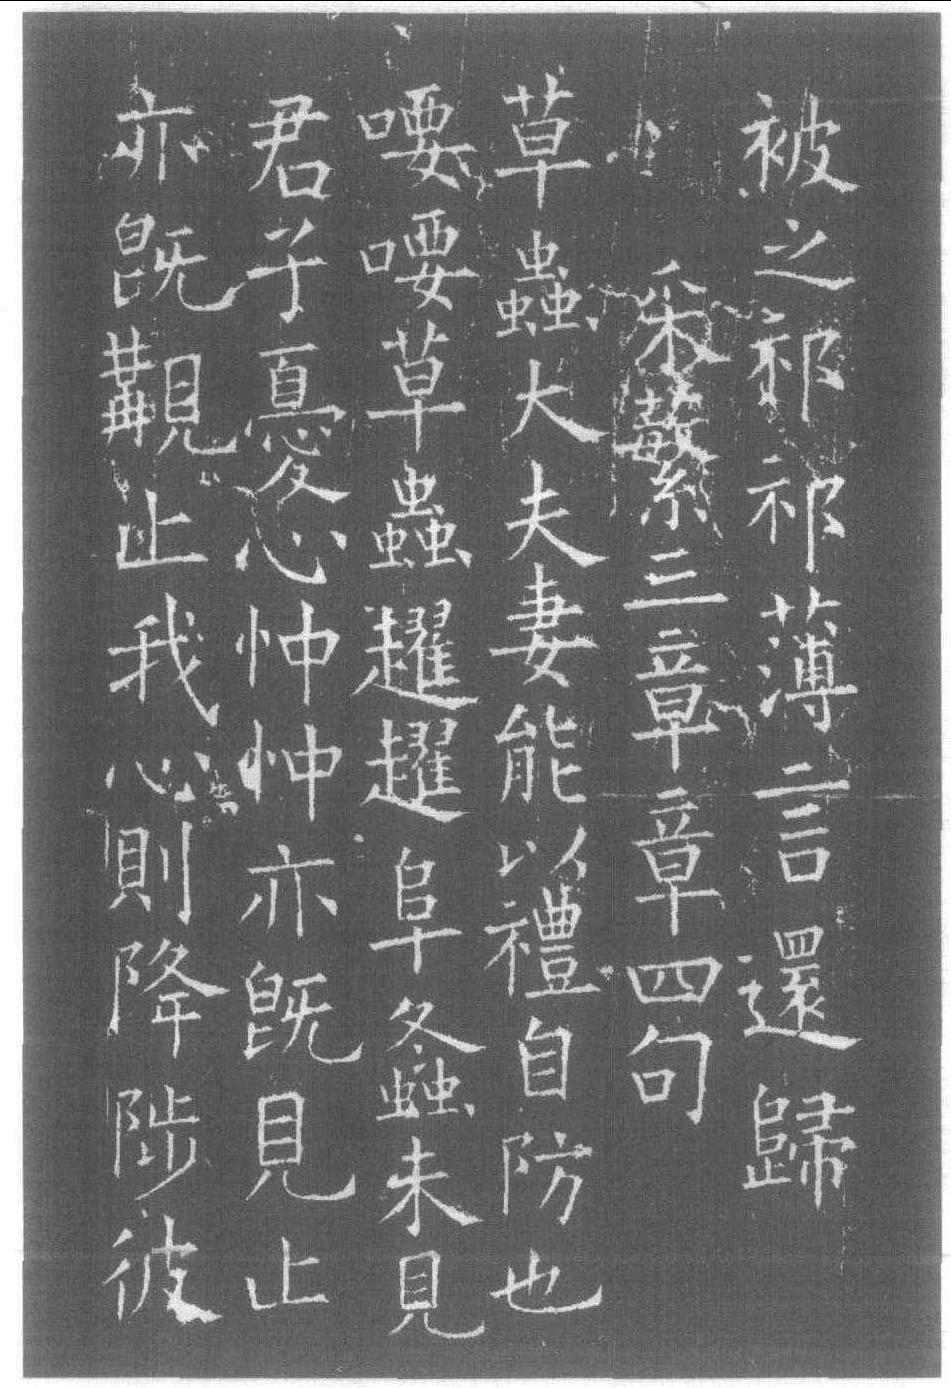 被之祁祁薄言還歸
采蘩三章章四句
草蟲大夫妻能以禮自防也
喓喓草蟲趯趯阜螽未見
君子憂心忡忡亦既見止
亦既覯止我心則降陟彼